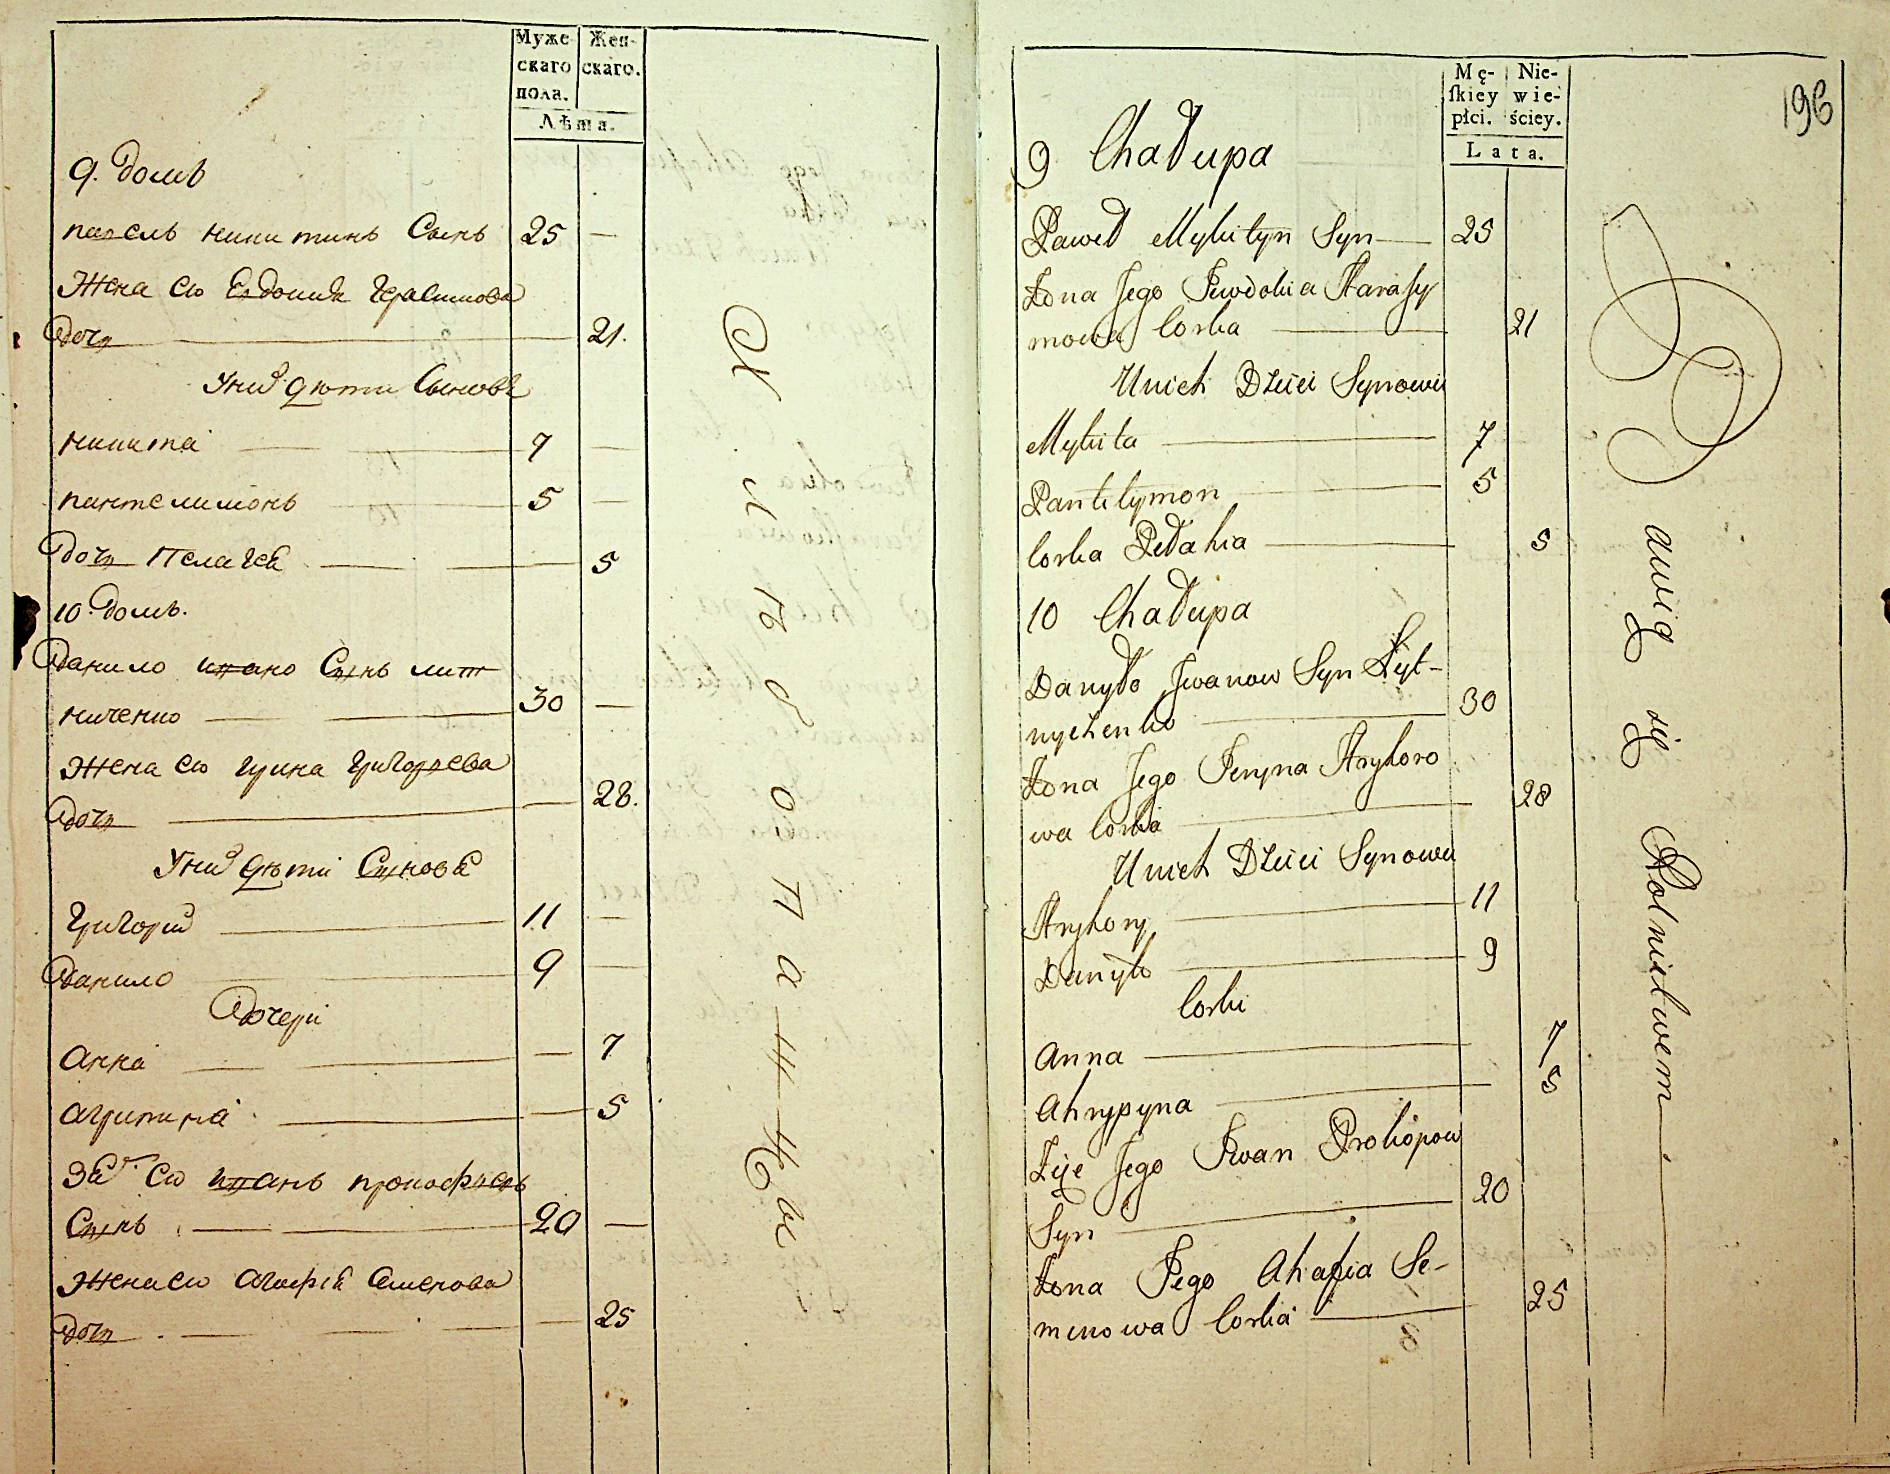 Муже-
скаго
пола.
Жен-
скаго.
Лѣта.
9. домъ
павелъ никитинъ Сынъ 25 —
Жена ею Евдокия Герасимова
дочь — 21.
Уних дѣти Сыновѣ
никита — 7 —
пантелимонъ — 5 —
дочь Пелагея — 5
10. домъ.
Данило ивано Сынъ лит
ниченко — 30 —
Жена ею ирина Григорьева
дочь — 28.
Уних дѣти Синовѣ
Григорий — 11 —
данило — 9 —
дочери
Анна — 7
агрипина — 5
ею иванъ прокофьевъ
Сынъ — 20 —
Жена ею агафия Семенова
дочь — 25
196
Mę-
ſkiey
płci.
Nie-
wie-
ściey.
Lata.
9 Chałupa
Paweł Mykityn Syn — 25
Żona Jego Jewdokia Harasy
mowa Corka — 21
Unich Dzieci Synowie
Mykita — 7
Pantelymon — 5
Corka Pełahia — 5
10 Chałupa
Danyło Jwanow Syn Lyt-
nyczenko — 30
Żona Jego Jeryna Hryhoro
wa Corka — 28
Unich Dzieci Synowie
Hryhory — 11
Danyło — 9
Corki
Anna — 7
Ahrypyna — 5
Zięc Jego Iwan Prokopow
Syn — 20
Żona Jego Ahafia Se-
menowa Corka — 25
Bawią się Rolnictwem